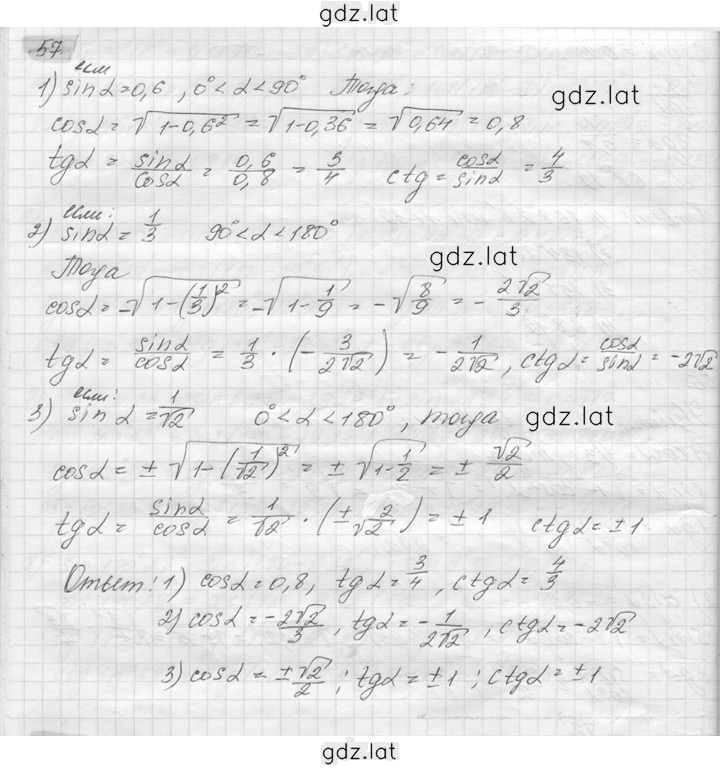 gdz.lat
57.
если
1) sinα=0,6 , 0°<α<90° Тогда:
gdz.lat
cosα=√(1-0,6²)=√(1-0,36)=√0,64=0,8
tgα = sinα/cosα = 0,6/0,8 = 3/4 ctg=cosα/sinα=4/3
если:
2) sinα=1/3 90°<α<180°
gdz.lat
Тогда
cosα=-√(1-(1/3)²)=-√(1-1/9)=-√(8/9)=-2√2/3
tgα = sinα/cosα = 1/3·(-3/(2√2)) = -1/(2√2), ctgα=cosα/sinα=-2√2
если:
3) sinα=1/√2 0°<α<180°, тогда
gdz.lat
cosα=±√(1-(1/√2)²)=±√(1-1/2)=±√2/2
tgα = sinα/cosα = 1/√2·(±2/√2)=±1 ctgα=±1
Ответ: 1) cosα=0,8, tgα=3/4, ctgα=4/3
2) cosα=-2√2/3, tgα=-1/(2√2), ctgα=-2√2
3) cosα=±√2/2; tgα=±1; ctgα=±1
gdz.lat